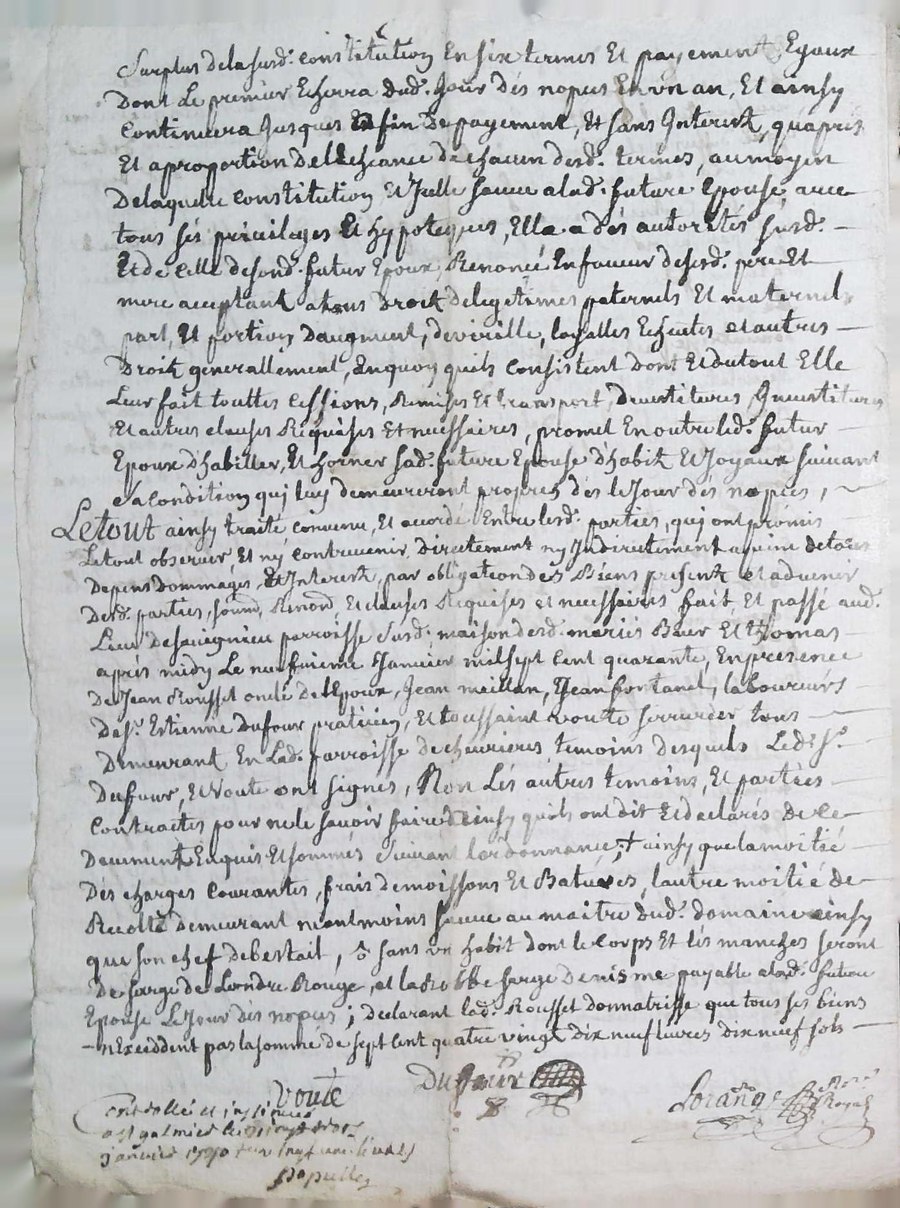 Surplus dela susd. constitution En six termes Et payement Egaux
Dont Le premier Echerra dud. Jour dés nopces En vn an, Et ainsy
Continuera Jusques En fin De payement, Et sans Interest, quaprés
Et aproportion De lEcheance De chacun desd. termes, au moyen
Delaquelle constitution Et Jcelle sauue alad. future Epouse, auec
tous sés priuileges Et hypoteques, Elle a dés autorités susd.
Et de Celle desond. futur Epoux Renoncé En faueur desesd. pere Et
mere aceptant atous Droit delegetimes paternels Et maternels
part, Et portion Daugment, devirille, layalles Echeutes et autres
Droit generallement, Enquoy quils Consistent dont Et dutout Elle
Leur fait touttes Cessions, Remises Et transport, devestitures, Jnvestitures
Et autres clauses Requises Et necessaires, promet En outre led. futur
Epoux d'habiller, Et horner sad. future Epouse d'habit Et Joyaux suiuant
sa condition quj luy demeureront propres dés le Jour dés nopces,
Le tout ainsy traité conuenu, Et accordé Entre lesd. parties, quj ont promis
Le tout obseruer, Et ny contreuenir directement ny Jndirectement apeine detous
Depens dommages, Et Interest, par obligation de s Biens present et aduenir
Desd. parties, soum, Renond, Et clauses Requises et necessaires fait, Et passé aud.
Lieu De sauignieu parroisse susd. maison desd. mariés Baur Et thomas
aprés midy Le neufuieme Januier mil sept Cent quarante, En presence
De Jean Rousset oncle de lEpoux, Jean meillan, Jean fontanel, laboureurs
De s. Estienne Dufour praticien, Et toussaint voute serrurier tous
Demeurant En Lad. parroisse de cheurieres temoins desquels Led. s.
Dufour, Et Voute ont signés, Non Lés autres temoins, Et parties
Contractes pour ne le sauoir faire ainsy quils ont dit Et declarés de Ce
Deuement Enquis Et sommés suiuant lordonnance; † ainsy que la moitié
Dés charges Courantes, frais demoissons Et Batures, lautre moitié de
Recolte demeurant neantmoins sauue au maitre dud. domaine ainsy
que son chef de bestail, sans vn habit dont le corps Et lés manches seront
de sarge de Londre Rouge, et la Robbe sarge De nisme payable alad. future
Epouse Le Jour dés nopces; declarant lad. Rousset donnatrisse que tous ses biens
nExceddent pas la somme de sept cent quatre vingt dix neuf liures dix neuf sols
Voute
Dufour
Lorange Nore Royal
Controllé et insinué
a st galmier le vingt
januier 1740